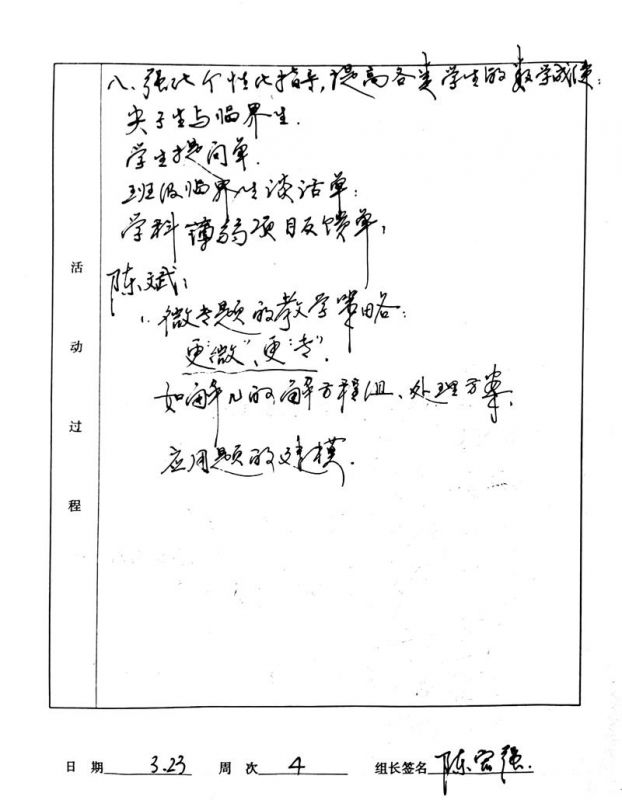 八、强化个性化指导,提高各类学生的数学成绩:
尖子生与临界生.
学生提问单.
班级临界生谈话单:
学科薄弱项目反馈单,
陈斌:
1. 微专题的教学策略:
更“微”,更“专”.
如解几的解方程组、处理方案,
应用题的建模.
活动过程
日 期 3.23 周 次 4 组长签名 陈宏强.